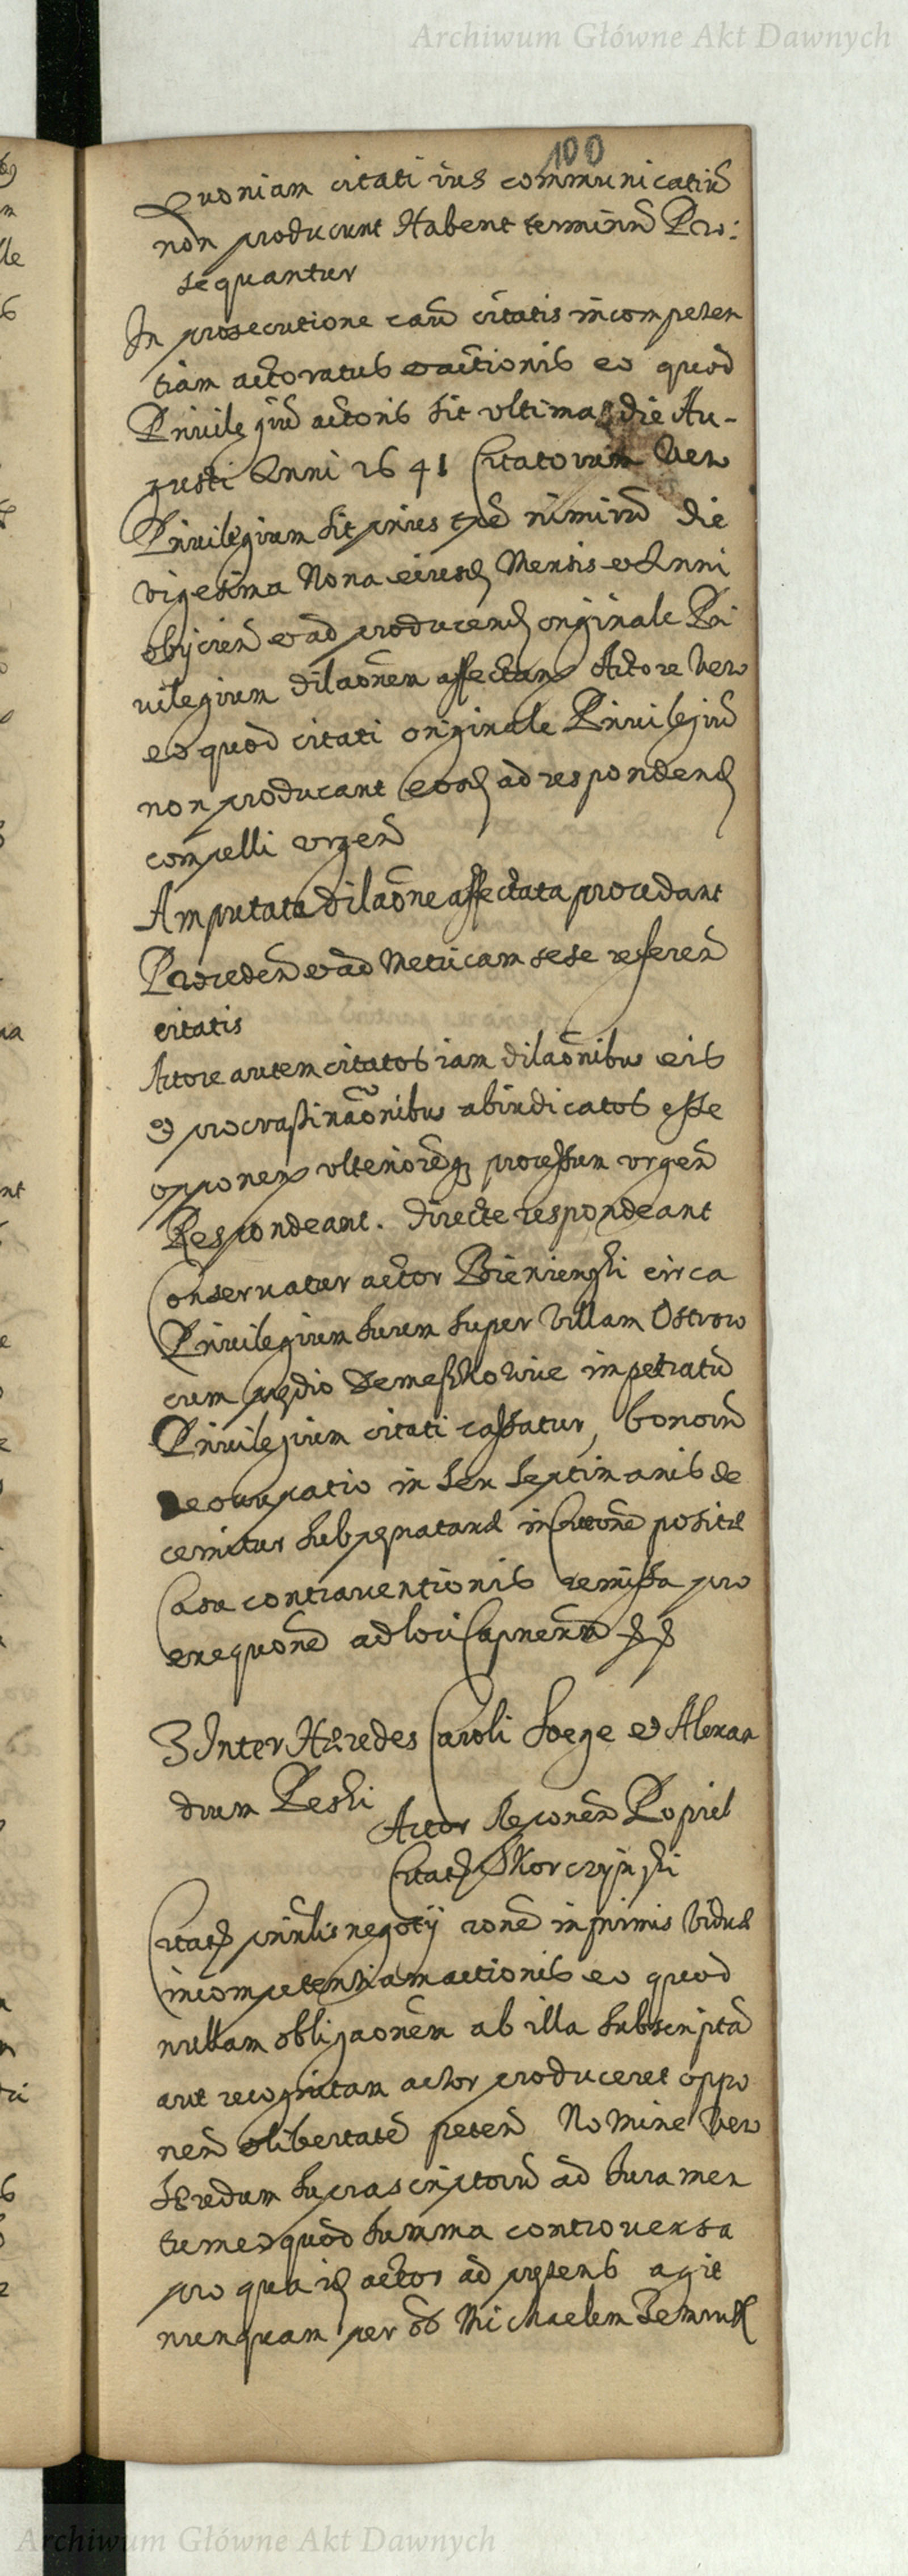 Archiwum Główne Akt Dawnych
100
Quoniam citati ius communicatiũ
non producunt Habent terminũ Pro:
sequantur
In prosecutione causæ citatis incompeten
tiam actoratus et actionis eo quod
Priuilegiũ actoris sit ultima die Au-
gusti Anni 1641 Citatorum Vero
Priuilegium sit prius tpẽ nimirũ die
vigesima Nona eiusd Mensis et Anni
obijcien̄ et ad producend originale Pri
uilegium dilaõnem affectan Actore Vero
eo quod citati originale Priuilegiũ
non producant eosd ad respondend
compelli urgen̄
Amputata dilaõne affectata procedant
Proceden̄ et ad Metricam sese referen̄
citatis
Actore autem citatos iam dilaõnibus eis
et procrastinaõnibus abiudicatos esse
opponen ulterioremq processum urgen̄
Respondeant. Directe respondeant
Conseruatur actor Bieniewski circa
Priuilegium suum super Villam Ostrow
cum prædio Demeszkowce impetratũ
Priuilegium citati cassatur, bonorũ
deoccupatio in sex septimanis de
cernitur sub pœna in Citaõne posita
Casu contrauentionis remissa pro
exequõne ad loci Capneum
3 Inter Hæredes Caroli Soege et Alexan
drum Peski
Actor Popiel
Citat Skorczynski
Citat prinlis negotij rõne inprimis Viduæ
incompetentiam actionis eo quod
nullam obligaõnem ab illa subscriptã
aut recognitam actor produceret oppo
nen̄ et libertatẽ peten̄ Nomine Vero
Hæredum suprascriptorũ ad Iuramen
tum eo quod summa controuersa
pro qua id actor ad præsens agit
nunquam per Michaelem
Archiwum Główne Akt Dawnych